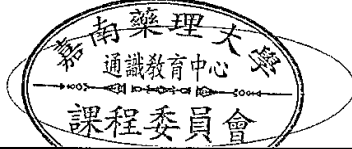 嘉南藥理大學
通識教育中心
課程委員會